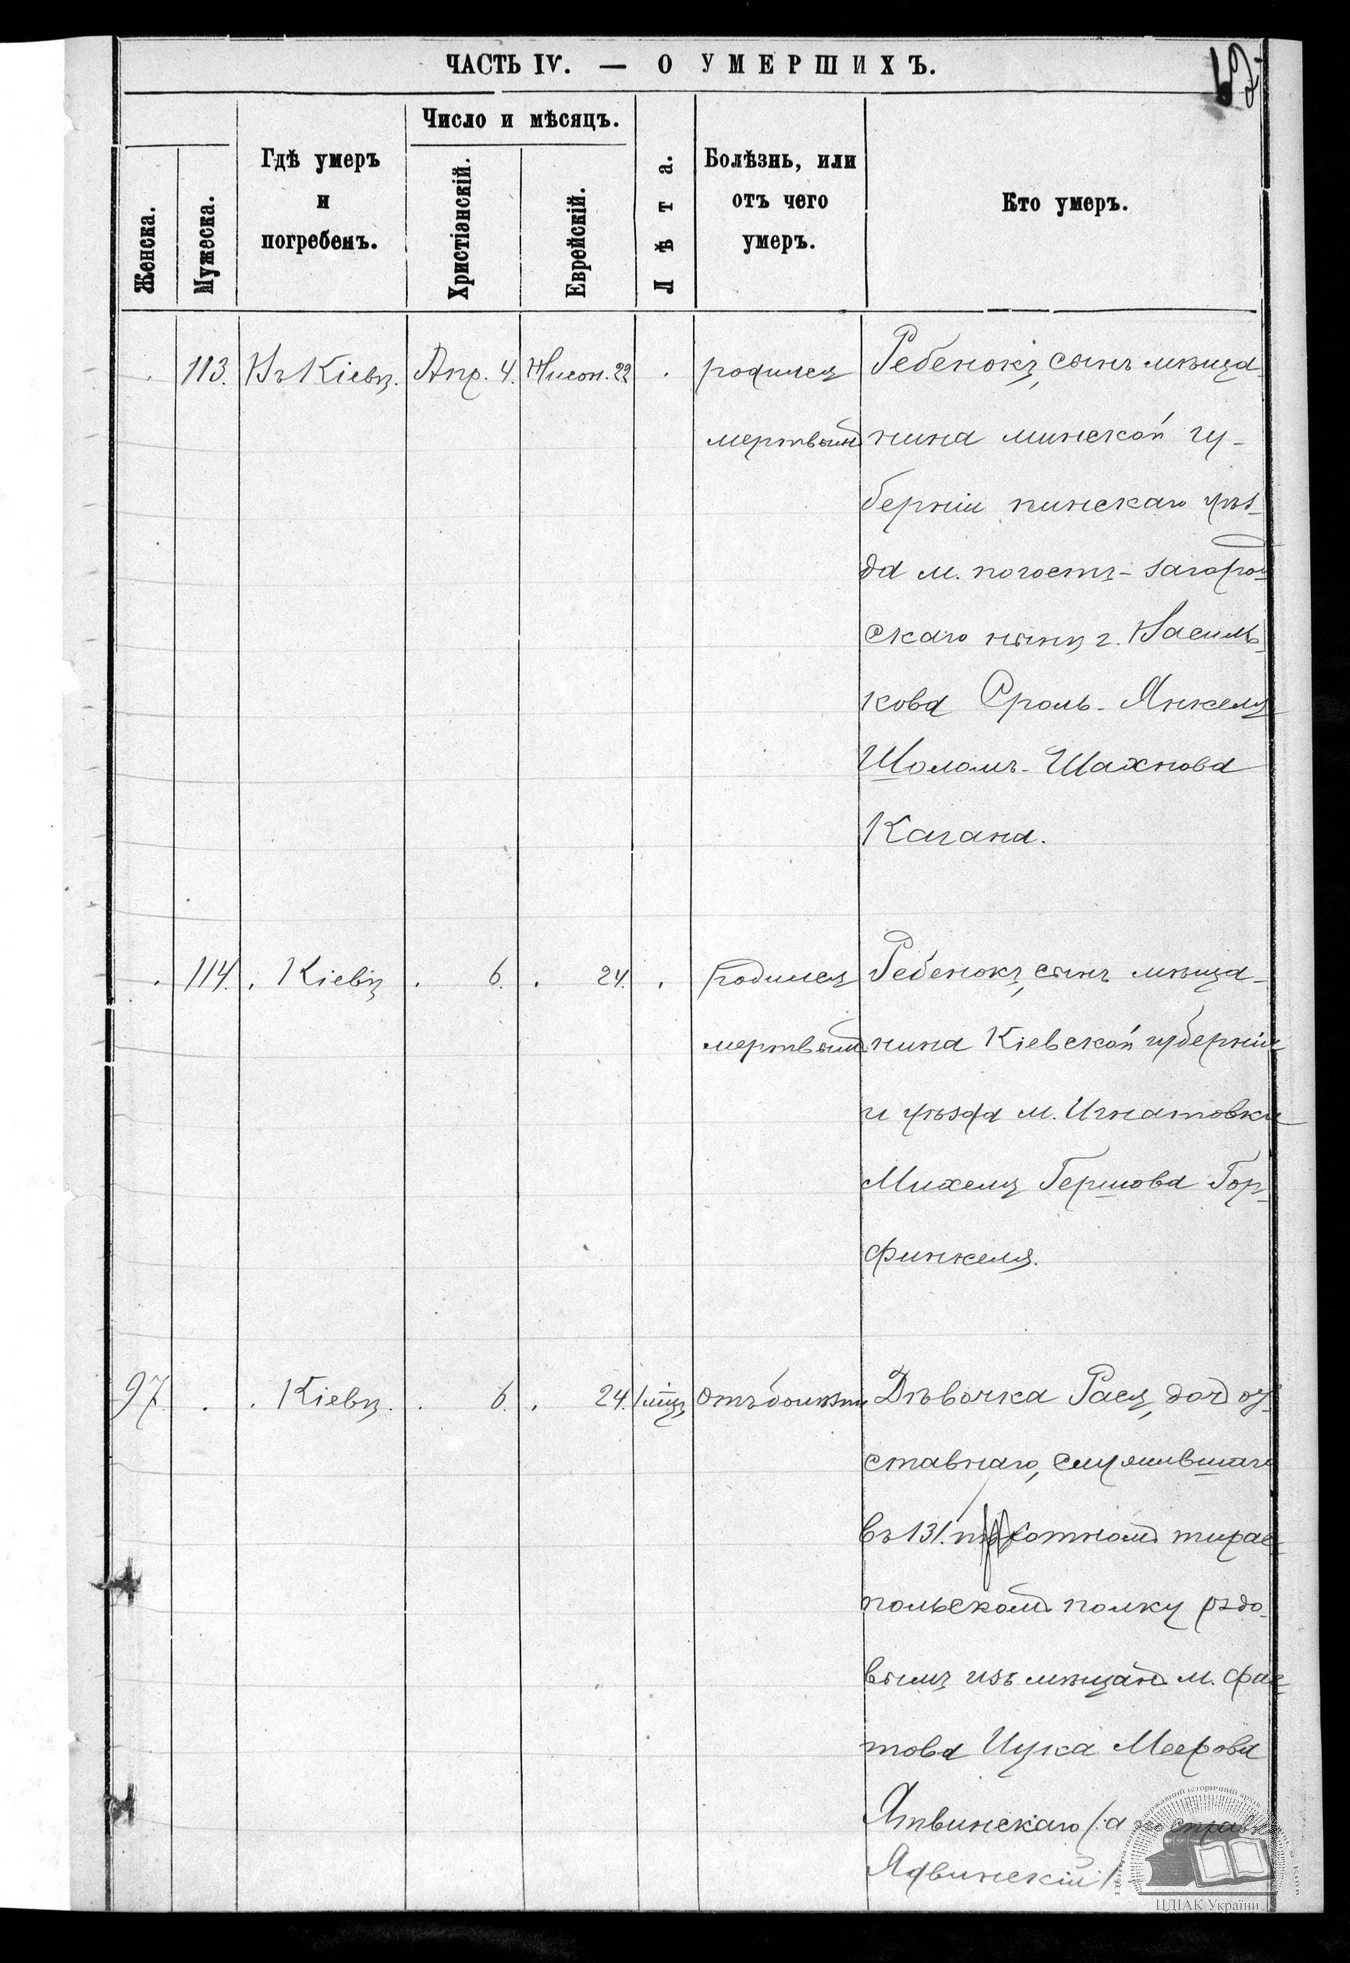 ЧАСТЬ IV. — О УМЕРШИХЪ.
Женска.
Мужеска.
Гдѣ умеръ
и
погребенъ.
Число и мѣсяцъ.
Христіанскій.
Еврейскій.
Лѣта.
Болѣзнь, или
отъ чего
умеръ.
Кто умеръ.
113. Въ Кіевѣ. Апр. 4. Нисон. 22 родился Ребенокъ, сынъ мѣща-
мертвымъ нина минской гу-
берніи пинскаго уѣз-
да м. погостъ-загород-
скаго нынѣ г. Василь-
кова Сроль-Янкеля
Шоломъ-Шахнова
Кагана.
114. Кіевѣ 6. 24. родился Ребенокъ, сынъ мѣща-
мертвымъ нина Кіевской губерніи
и уѣзда м. Игнатовки
Михеля Гершова Гор-
финкеля.
97. Кіевѣ. 6. 24. Отъ болѣзни Дѣвочка Рася, доч от-
ставнаго, служившаго
въ 131. пѣхотномъ тирас-
польскомъ полку рядо-
вымъ изъ мѣщанъ м. Фас-
това Ицка Меерова
Ятвинскаго /: а по справкѣ
Ядвинскій /
ЦДІАК України